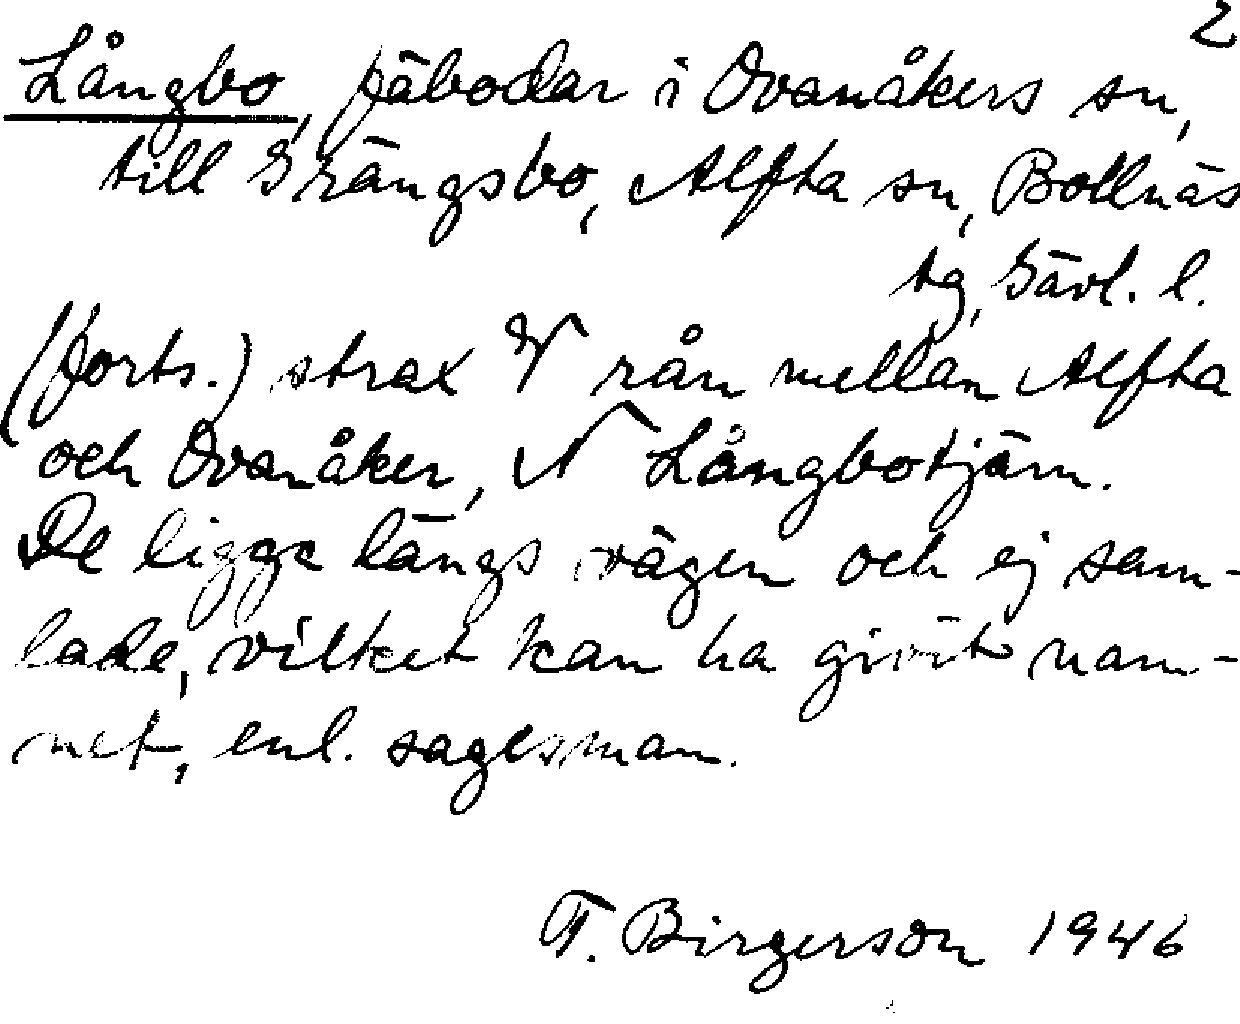 2
Långbo, fäbodar i Ovanåkers sn,
till Grängsbo, Alfta sn, Bollnäs
tg, Gävl. l.
(forts.) strax V rån mellan Alfta
och Ovanåker, N Långbotjärn.
De ligga längs vägen och ej sam-
lade, vilket kan ha givit nam-
net, enl. sagesman.
T. Birgerson 1946